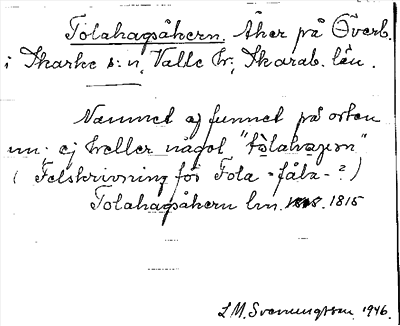 Tolahagsåkern. Åker på Överb.
i Skarke s:n, Valle hr, Skarab. län.
Namnet ej funnet på orten
nu. ej heller något "tòlahagen"
( Felskrivning för Fola - fåla- ? )
Tolahagsåkern lm. 1815
L M. Svenungsson 1946.